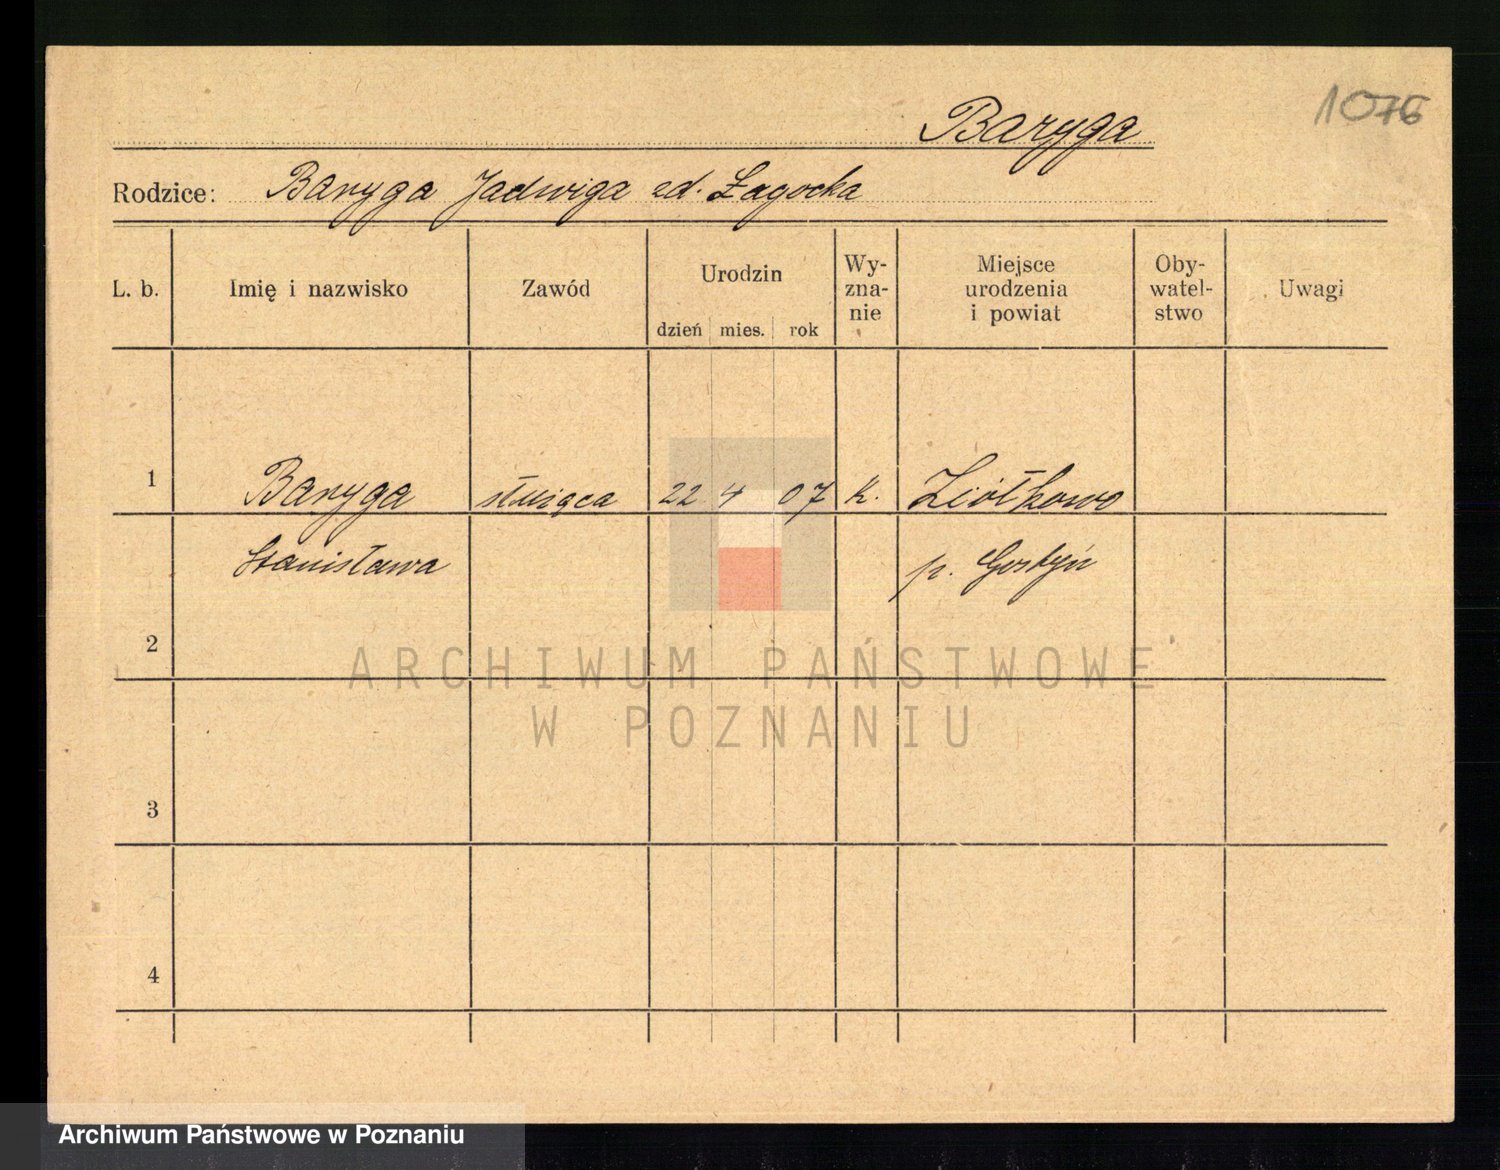 1076
Baryga
Rodzice: Baryga Jadwiga zd. Łagocka
L. b. Imię i nazwisko Zawód Urodzin dzień mies. rok Wy-zna-nie Miejsce urodzenia i powiat Oby-watel-stwo Uwagi
1 Baryga służąca 22 4 07 k. Ziółkowo
Stanisława p. Gostyń
2
ARCHIWUM PAŃSTWOWE
W POZNANIU
3
4
Archiwum Państwowe w Poznaniu